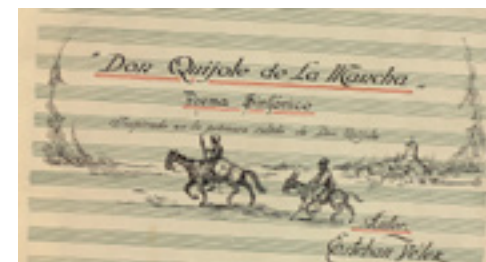 "Don Quijote de La Mancha"
Poema Sinfónico
Inspirado en la primera salida de Don Quijote
Autor:
Esteban Vélez